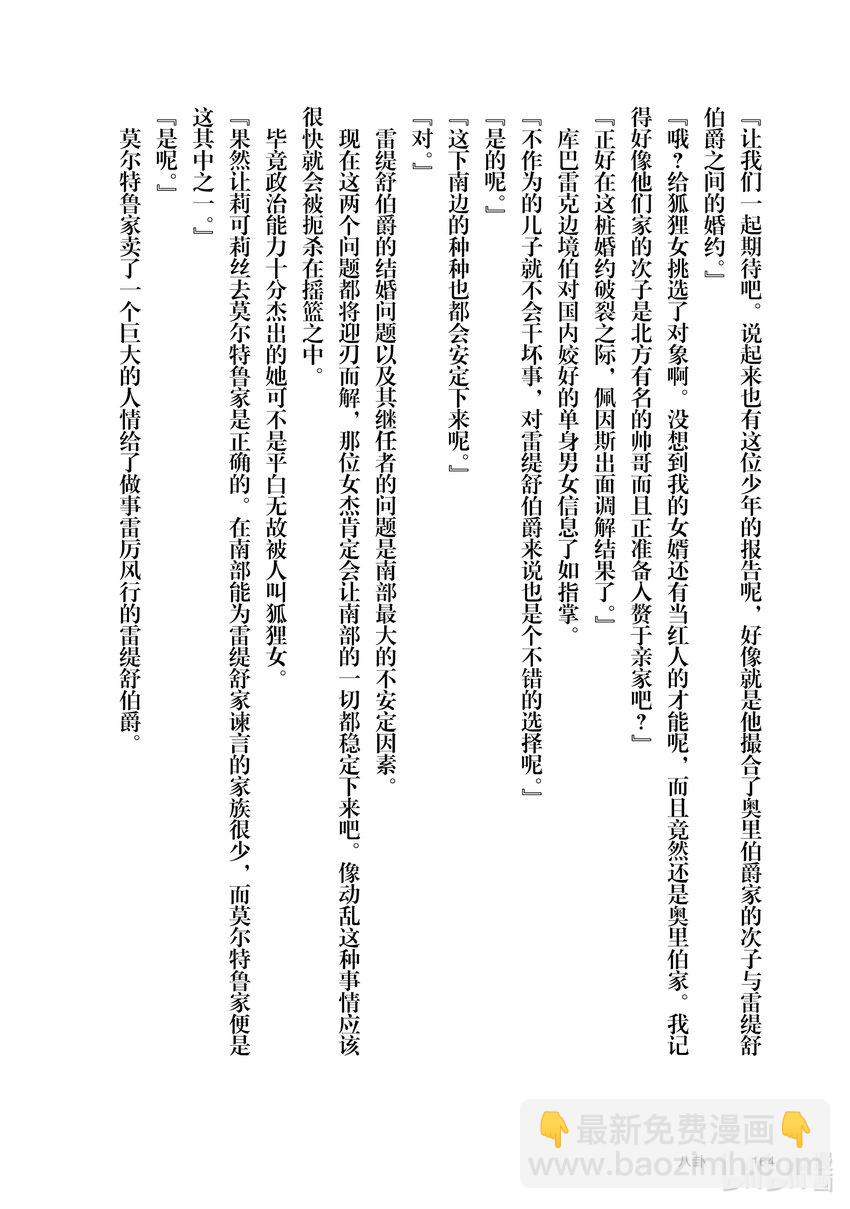 『让我们一起期待吧。说起来也有这位少年的报告呢，好像就是他撮合了奥里伯爵家的次子与雷缇舒
伯爵之间的婚约。』
『哦？给狐狸女挑选了对象啊。没想到我的女婿还有当红人的才能呢，而且竟然还是奥里伯家。我记
得好像他们家的次子是北方有名的帅哥而且正准备入赘于亲家吧？』
『正好在这桩婚约破裂之际，佩因斯出面调解结果了。』
库巴雷克边境伯对国内姣好的单身男女信息了如指掌。
『不作为的儿子就不会干坏事，对雷缇舒伯爵来说也是个不错的选择呢。』
『是的呢。』
『这下南边的种种也都会安定下来呢。』
『对。』
雷缇舒伯爵的结婚问题以及其继任者的问题是南部最大的不安定因素。
现在这两个问题都将迎刃而解，那位女杰肯定会让南部的一切都稳定下来吧。像动乱这种事情应该
很快就会被扼杀在摇篮之中。
毕竟政治能力十分杰出的她可不是平白无故被人叫狐狸女。
『果然让莉可莉丝去莫尔特鲁家是正确的。在南部能为雷缇舒家谏言的家族很少，而莫尔特鲁家便是
这其中之一。』
『是呢。』
莫尔特鲁家卖了一个巨大的人情给了做事雷厉风行的雷缇舒伯爵。
八卦 164
最新免费漫画
www.baozimh.com